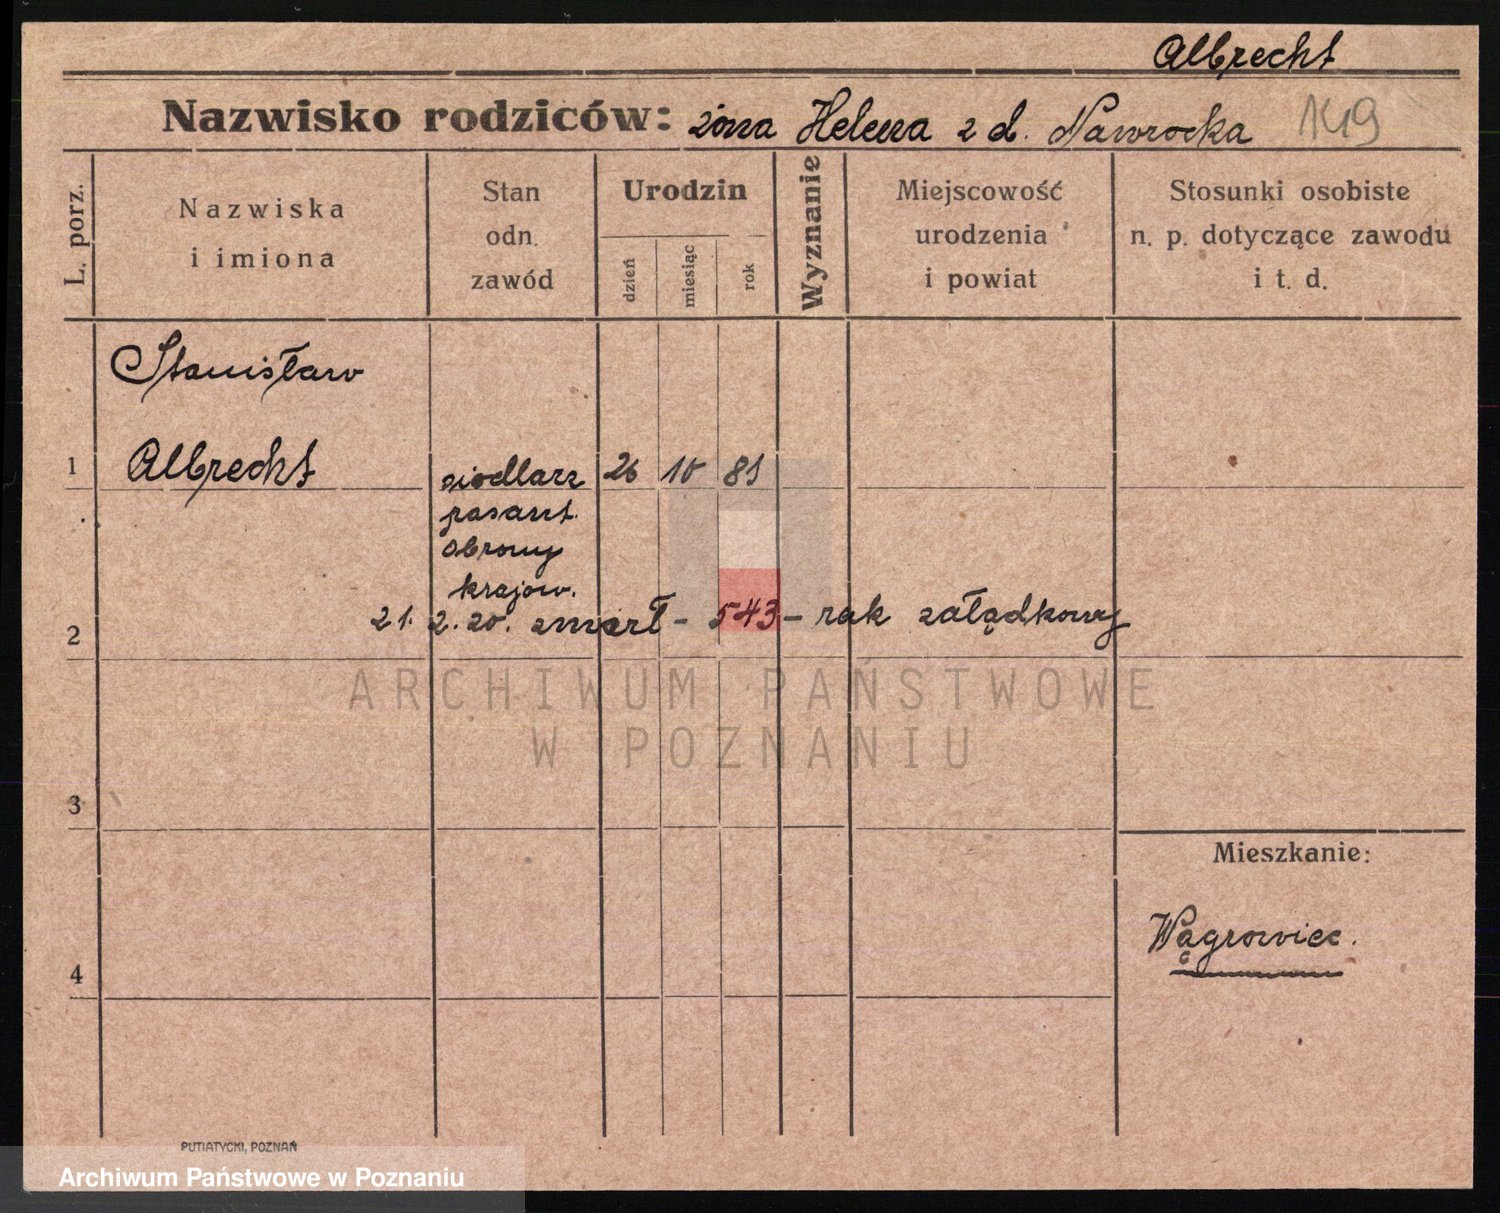 Albrecht
Nazwisko rodziców: żona Helena z d. Nawrocka 149
L. porz.
Nazwiska
i imiona
Stan
odn.
zawód
Urodzin
dzień
miesiąc
rok
Wyznanie
Miejscowość
urodzenia
i powiat
Stosunki osobiste
n. p. dotyczące zawodu
i t. d.
Stanisław
1 Albrecht siodlarz 26 10 81
asant.
obrony
krajow.
2 21. 2. 20. zmarł - 543 - rak załądkowy
ARCHIWUM PAŃSTWOWE
W POZNANIU
3
Mieszkanie:
Wągrowiec.
4
PUTIATYCKI, POZNAŃ
Archiwum Państwowe w Poznaniu